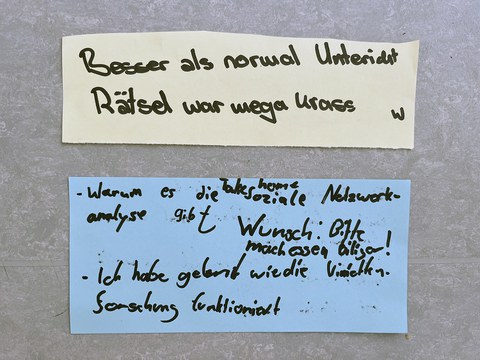 Besser als normal Unterricht
Rätsel war mega krass
W
- Warum es die soziale Netzwerk-
analyse gibt
Take home
Wunsch: Bitte
mach essen billiger!
- Ich habe gelernt wie die
forschung funktioniert